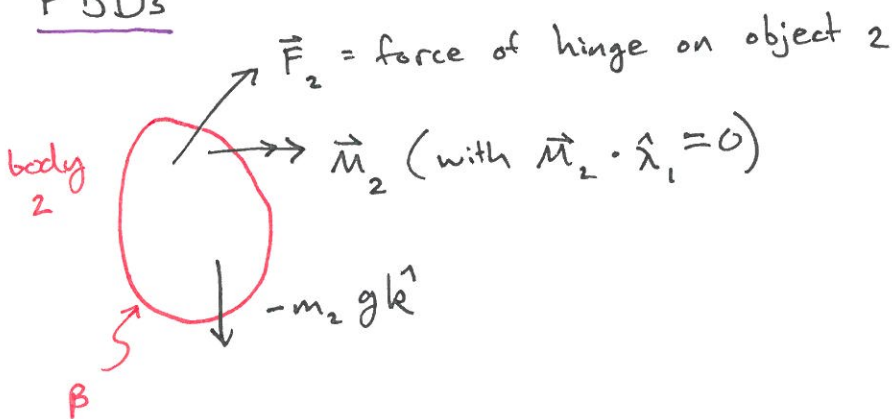 FBDs
F⃗₂ = force of hinge on object 2
body
2
M⃗₂ (with M⃗₂ · λ̂₁ = 0)
-m₂ g k̂
β